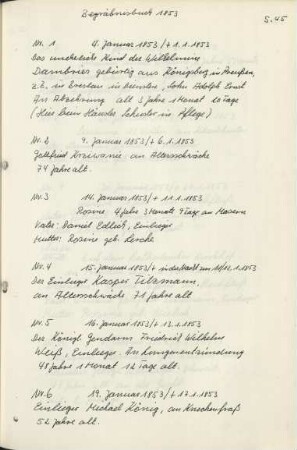 Begräbnisbuch 1853
S. 45
Nr. 1 4. Januar 1853/+ 1.1.1853
Das uneheliche Kind des Wilhelmine
Dambries gebürtig aus Königsberg in Preußen,
z.Z. in Breslau in Diensten, Sohn Adolph Ernst
An Abzehrung alt 3 Jahre 1 Monat 10 Tage
(Hier beim Häusler Schuster in Pflege)
Nr. 2 9. Januar 1853/+ 6.1.1853
Gottfried an Altersschwäche
74 Jahre alt.
Nr. 3 14. Januar 1853/+ 11.1.1853
Rosine 4 Jahre 3 Monate 9 Tage an Masern
Vater: Daniel Einlieger
Mutter: Rosine geb. Lerche
Nr. 4 15. Januar 1853/+ in der Nacht zum 1853
Der Einlieger Kasper Titzmann,
an Altersschwäche 71 Jahre alt
Nr. 5 16. Januar 1853/+ 13.1.1853
Der Königl Gendarm Friedrich Wilhelm
Weiß, Einlieger. An Lungenentzündung
48 Jahre 1 Monat 12 Tage alt.
Nr. 6 19. Januar 1853/+ 17.1.1853
Einlieger Michael König, an Knochenfraß
52 Jahre alt.